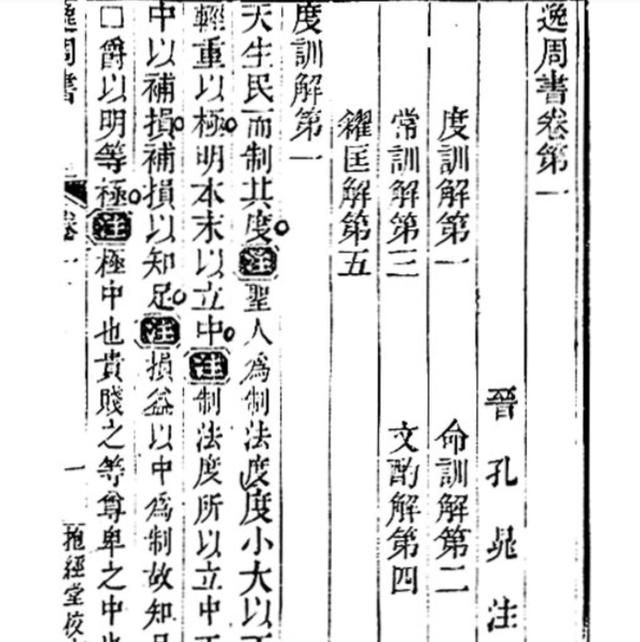 逸周書卷第一
晉孔晁注
度訓解第一 命訓解第二
常訓解第三 文酌解第四
糴匡解第五
度訓解第一
天生民而制其度。注聖人爲制法度度小大以
輕重以極。明本末以立中。注制法度所以立中
中以補損。補損以知足。注損益以中爲制故知
□爵以明等極。注極中也貴賤之等尊卑之中
逸周書 卷一 一 抱經堂校